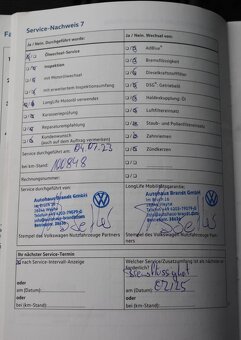 Service-Nachweis 7
Ja / Nein. Durchgeführt wurde:
Ölwechsel-Service
Inspektion
mit Motorölwechsel
mit erweitertem Inspektionsumfang
LongLife Motoröl verwendet
Karosserieprüfung
Reparaturempfehlung
Kundenwunsch
(auch auf dem Auftrag vermerken)
Service durchgeführt am: 04.07.23
bei km-Stand: 100848
Rechnungsnummer:
Service durchgeführt von:
Autohaus Brandt GmbH
Stempel des Volkswagen Nutzfahrzeuge Partners
Ja / Nein. Wechsel von:
AdBlue®
Bremsflüssigkeit
Dieselkraftstofffilter
DSG®-Getriebeöl
Haldexkupplung: Öl
Luftfiltereinsatz
Staub- und Pollenfiltereinsatz
Zahnriemen
Zündkerzen
LongLife Mobilitätsgarantie:
Autohaus Brandt GmbH
Stempel des Volkswagen Nutzfahrzeuge Partners
Ihr nächster Service-Termin
nach Service-Intervall-Anzeige
oder
am (Datum):
oder
bei (km-Stand):
Welcher Service/Zusatzumfang ist als nächster erforderlich?
Bremsflüssigkeit
am (Datum):
oder
bei (km-Stand):